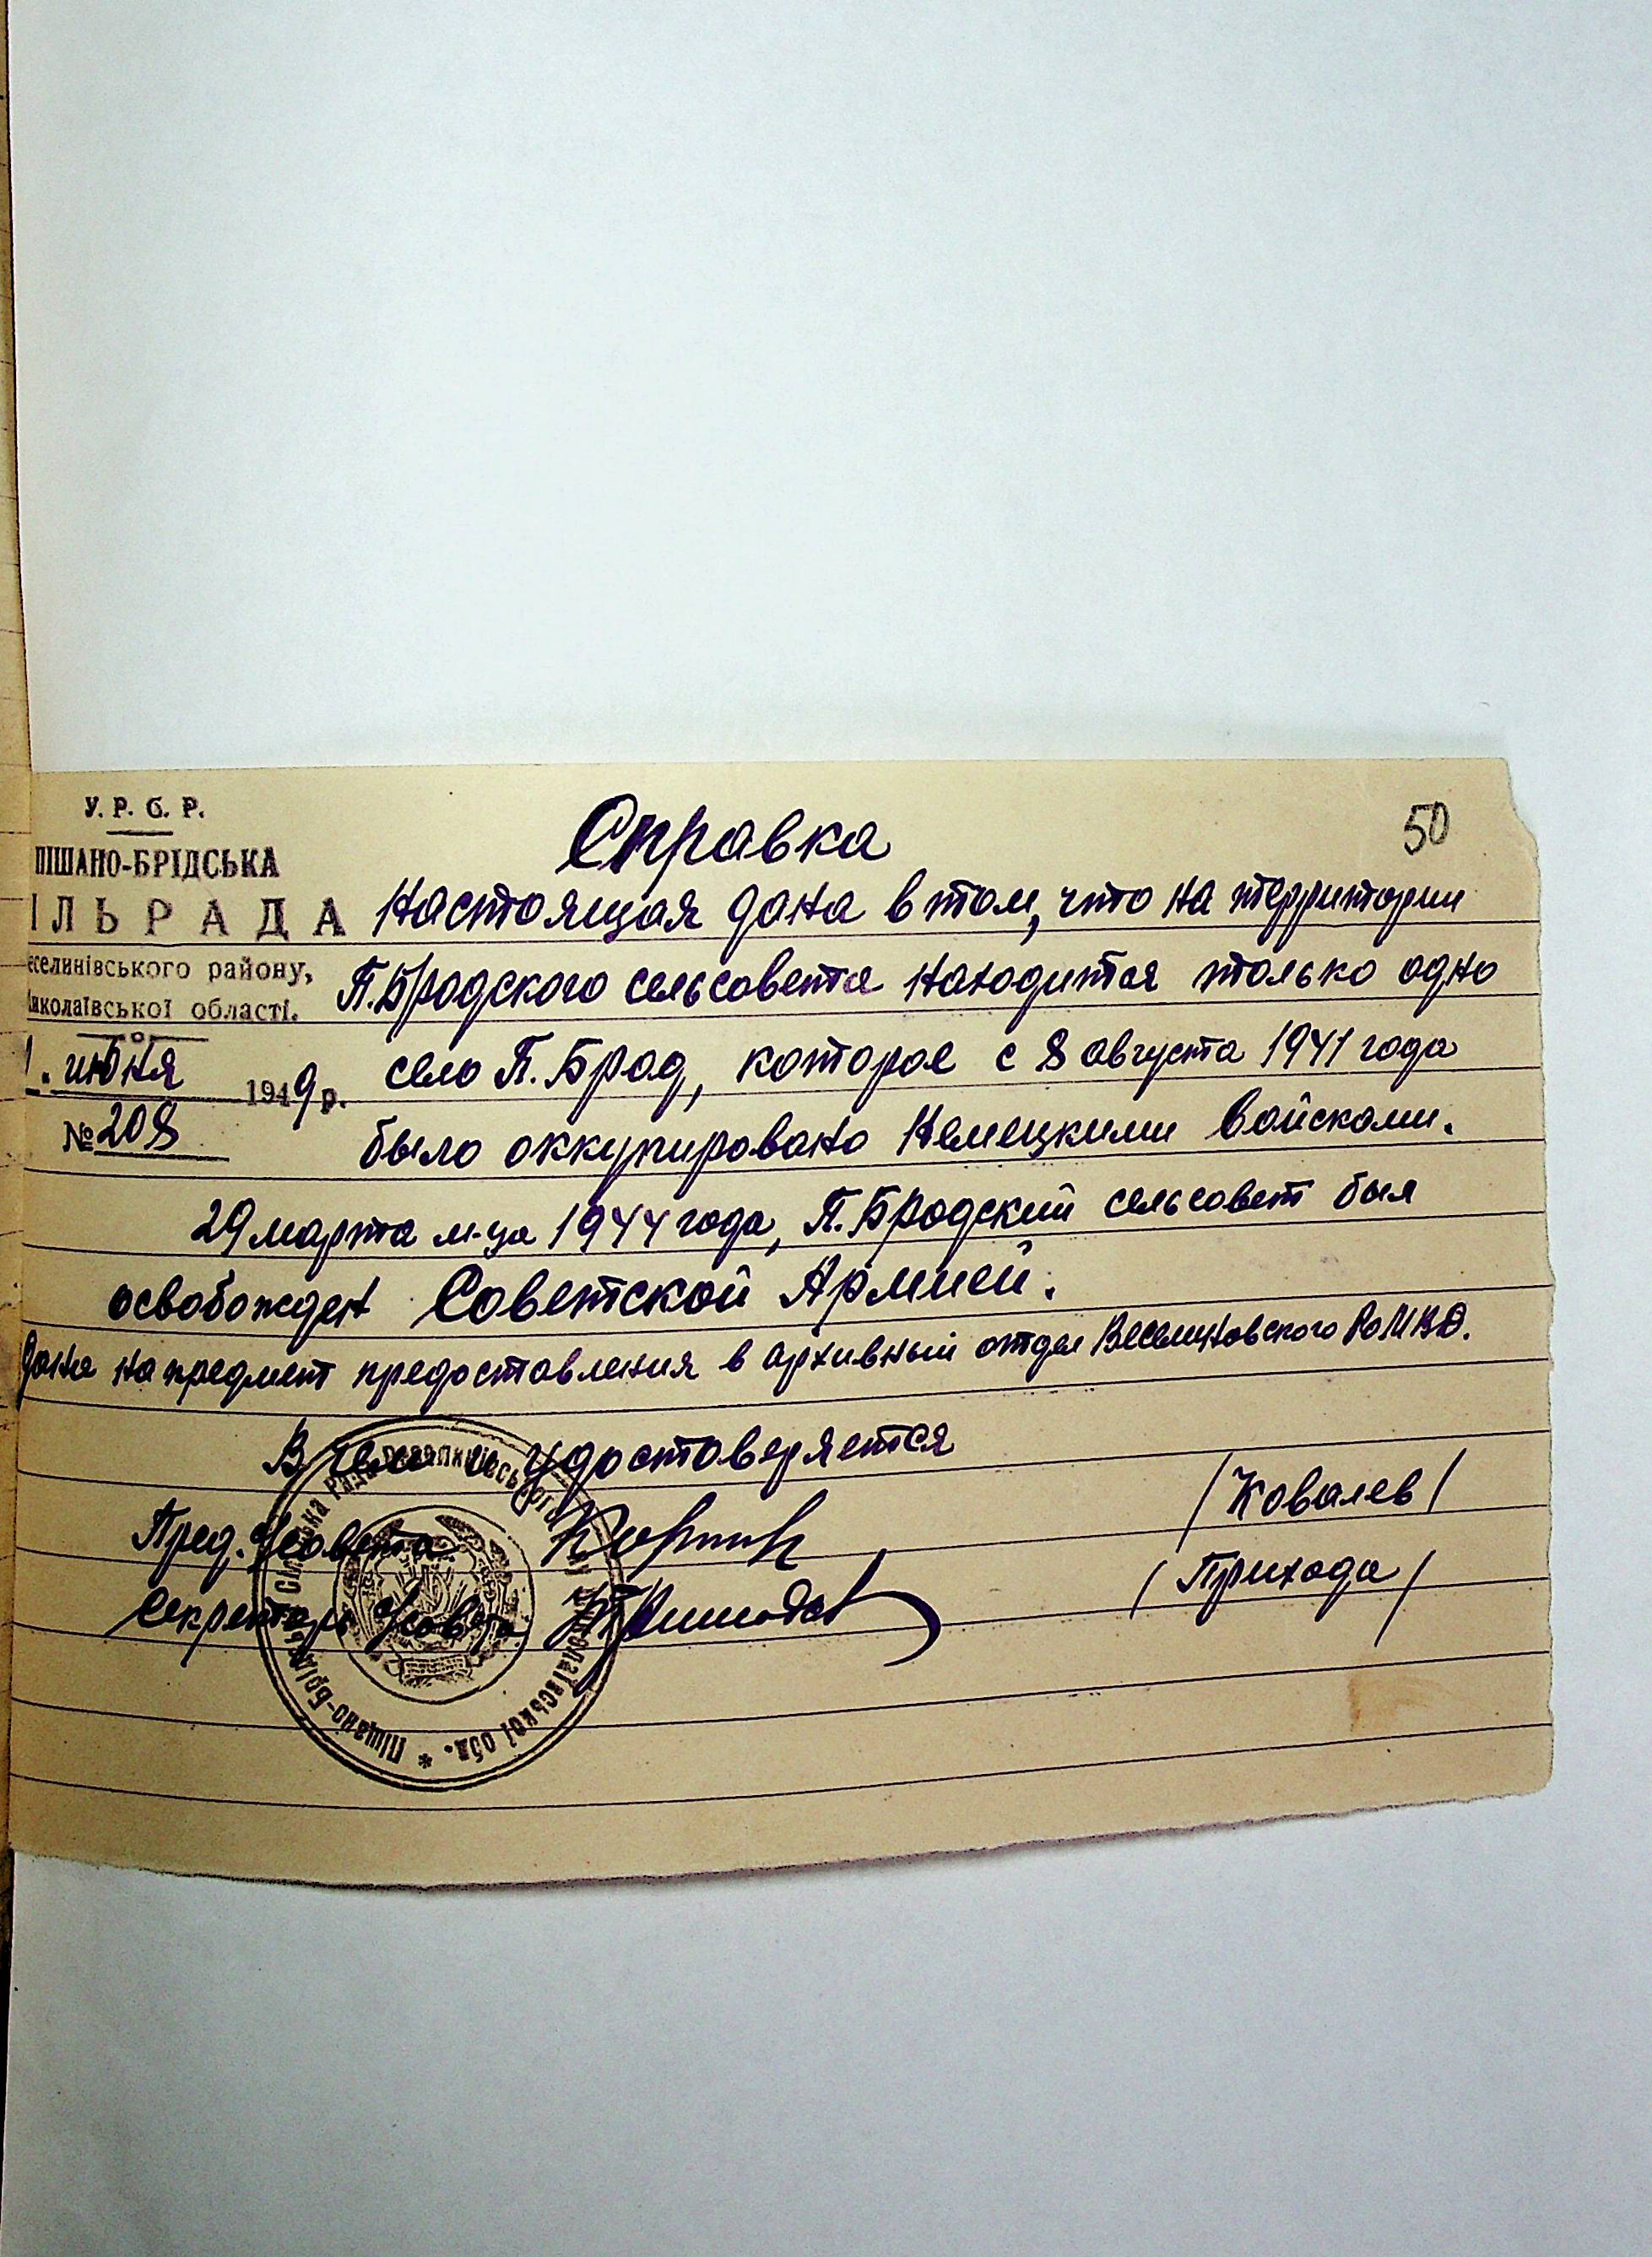 У. Р. С. Р.
ПІЩАНО-БРІДСЬКА
ІЛЬРАДА
еселинівського району,
иколаївської області.
1. июня 1949 р.
№ 208
50
Справка
Настоящая дана в том, что на территории
П.Бродского сельсовета находится только одно
село П. Брод, которое с 8 августа 1941 года
было оккупировано немецкими войсками.
29 марта м-ца 1944 года, П. Бродский сельсовет был
освобожден Советской Армией.
Дана на предмет предоставления в архивный отдел Веселиновского РоМВД.
В чем и удостоверяется
Пред. с/совета /Ковалев/
Секретарь с/совета /Прихода/
Піщано-Брідська Сільська Рада Миколаївської обл. *